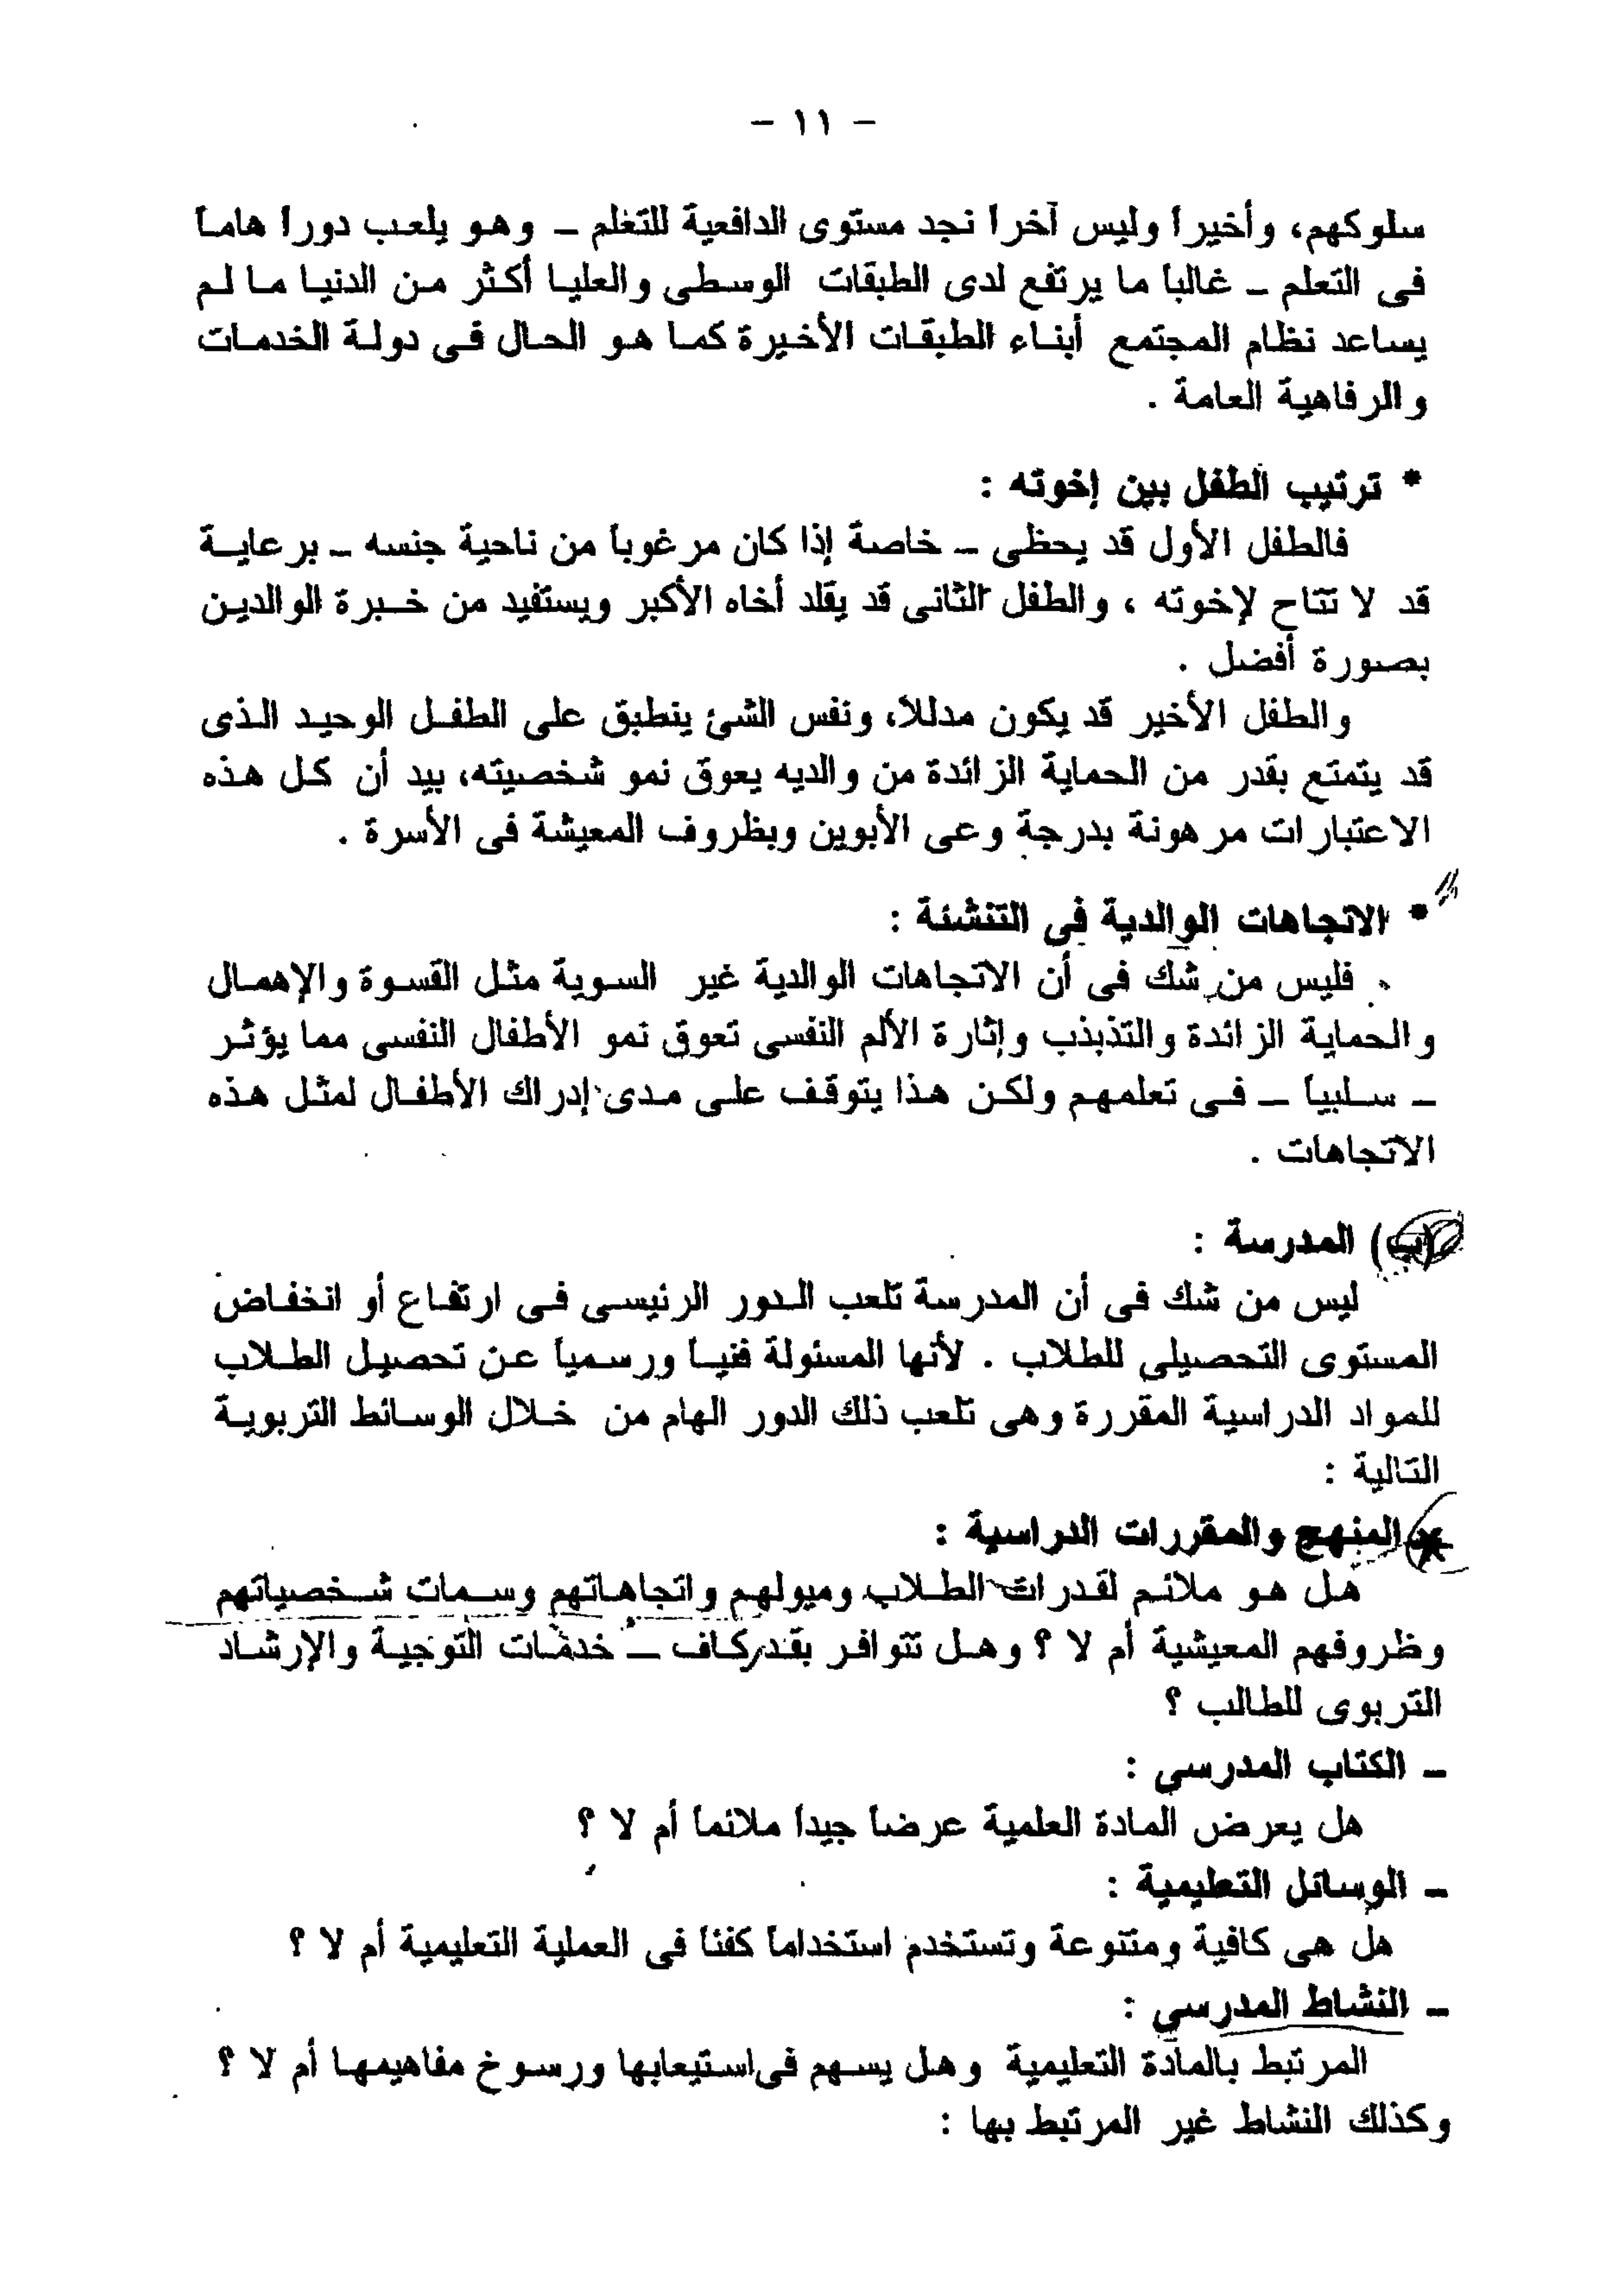 - ١١ -
سلوكهم، وأخيراً وليس آخراً نجد مستوى الدافعية للتعلم – وهو يلعب دوراً هاماً
فى التعلم – غالباً ما يرتفع لدى الطبقات الوسطى والعليا أكثر من الدنيا ما لم
يساعد نظام المجتمع أبناء الطبقات الأخيرة كما هو الحال فى دولة الخدمات
والرفاهية العامة .
* ترتيب الطفل بين إخوته :
فالطفل الأول قد يحظى – خاصة إذا كان مرغوباً من ناحية جنسه – برعاية
قد لا تتاح لإخوته ، والطفل الثانى قد يقلد أخاه الأكبر ويستفيد من خبرة الوالدين
بصورة أفضل .
والطفل الأخير قد يكون مدللاً، ونفس الشئ ينطبق على الطفل الوحيد الذى
قد يتمتع بقدر من الحماية الزائدة من والديه يعوق نمو شخصيته، بيد أن كل هذه
الاعتبارات مرهونة بدرجة وعى الأبوين وبظروف المعيشة فى الأسرة .
* الاتجاهات الوالدية فى التنشئة :
فليس من شك فى أن الاتجاهات الوالدية غير السوية مثل القسوة والإهمال
والحماية الزائدة والتذبذب وإثارة الألم النفسى تعوق نمو الأطفال النفسى مما يؤثر
– سلبياً – فى تعلمهم ولكن هذا يتوقف على مدى إدراك الأطفال لمثل هذه
الاتجاهات .
(ب) المدرسة :
ليس من شك فى أن المدرسة تلعب الدور الرئيسى فى ارتفاع أو انخفاض
المستوى التحصيلى للطلاب . لأنها المسئولة فنياً ورسمياً عن تحصيل الطلاب
للمواد الدراسية المقررة وهى تلعب ذلك الدور الهام من خلال الوسائط التربوية
التالية :
– المنهج والمقررات الدراسية :
هل هو ملائم لقدرات الطلاب وميولهم واتجاهاتهم وسمات شخصياتهم
وظروفهم المعيشية أم لا ؟ وهل تتوافر بقدر كاف – خدمات التوجية والإرشاد
التربوى للطالب ؟
– الكتاب المدرسي :
هل يعرض المادة العلمية عرضاً جيداً ملائماً أم لا ؟
– الوسائل التعليمية :
هل هى كافية ومتنوعة وتستخدم استخداماً كفئاً فى العملية التعليمية أم لا ؟
– النشاط المدرسي :
المرتبط بالمادة التعليمية وهل يسهم فى استيعابها ورسوخ مفاهيمها أم لا ؟
وكذلك النشاط غير المرتبط بها :